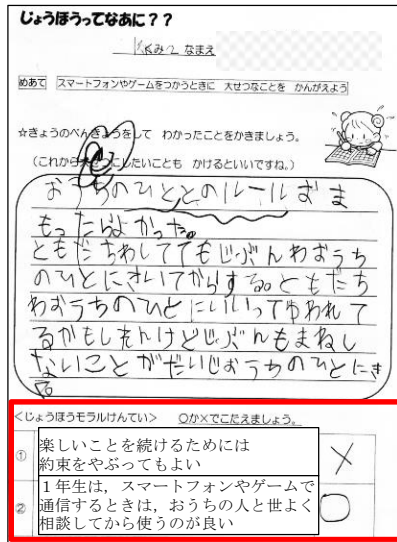 じょうほうってなあに？？
なまえ
めあて スマートフォンやゲームをつかうときに 大せつなことを かんがえよう
☆きょうのべんきょうをして わかったことをかきましょう。
（これから にしたいことも かけるといいですね。）
おうちのひととのルールおま
もったらよかった。
ともだちわしててもじぶんわおうち
のひとにきいてからする。ともだち
わおうちのひとにいいってゆわれて
るかもしれんけどじぶんもまねし
ないことがだいじおうちのひとにき
る
＜じょうほうモラルけんてい＞ ○か×でこたえましょう。
① 楽しいことを続けるためには
約束をやぶってもよい ×
１年生は，スマートフォンやゲームで
② 通信するときは，おうちの人と世よく ○
相談してから使うのが良い